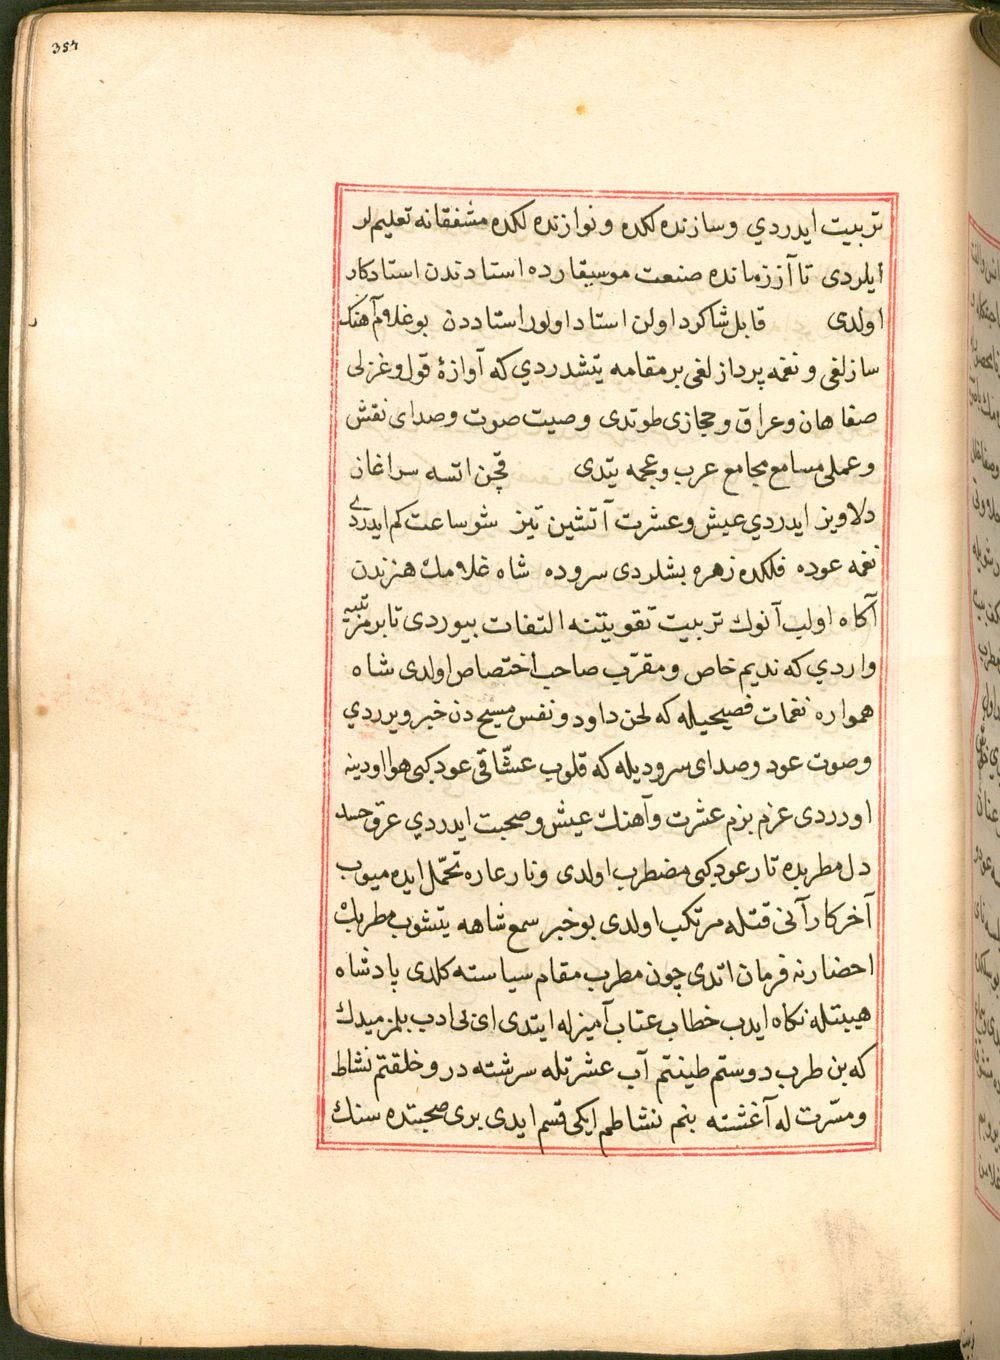 354
تربیت ایدردي وسازنده‌لکده و نوازنده‌لکده مشفقانه تعلیملر
ایلردی تا آز زمانده صنعت موسیقارده استاد تدن استادکار
اولدی قابل شاکرد اولن استاد اولور استاددن بوغلام آهنك
سازلغی و نغمه پردازلغی بر مقامه یتشدردي که آوازۀ قول و غزلی
صفاهان و عراق و حجازی طوتدی وصیت صوت وصدای نقش
و عملی مسامع مجامع عرب و عجمه یتدی قچن اتسه سراغان
دلاویز ایدردي عیش و عشرت آتشین تیز شو ساعت کم ایدردي
نغمه عوده فلکده زهره بشلردی سروده شاه غلامك هنرندن
آکاه اولب آنوك تربیت تقویتنه التفات بیوردی تا بر مرتبیه
واردي که ندیم خاص و مقرّب صاحب اختصاص اولدی شاه
همواره نغمات فصیحیله که لحن داود و نفس مسیح دن خبر ویرردي
وصوت عود وصدای سرودیله که قلوب عشّاقی عود کبی هوا اودینه
اوردردی عزم بزم عشرت و آهنك عیش و صحبت ایدردي عرق حسد
دل مطربده تار عود کبی مضطرب اولدی ونار عاره تحمّل ایده میوب
آخر کار آنی قتله مرتکب اولدی بو خبر سمع شاهه یتشوب مطربك
احضارنه فرمان اتدی چون مطرب مقام سیاسته کلدی پادشاه
هیبتله نکاه ایدب خطاب عتاب آمیزله ایتدی ای بی ادب بلمزمیدك
که بن طرب دوستم طینتم آب عشرتله سرشته در و خلقتم نشاط
ومسّرت له آغشته بنم نشاطم ایکی قسم ایدی بری صحبتده سنك